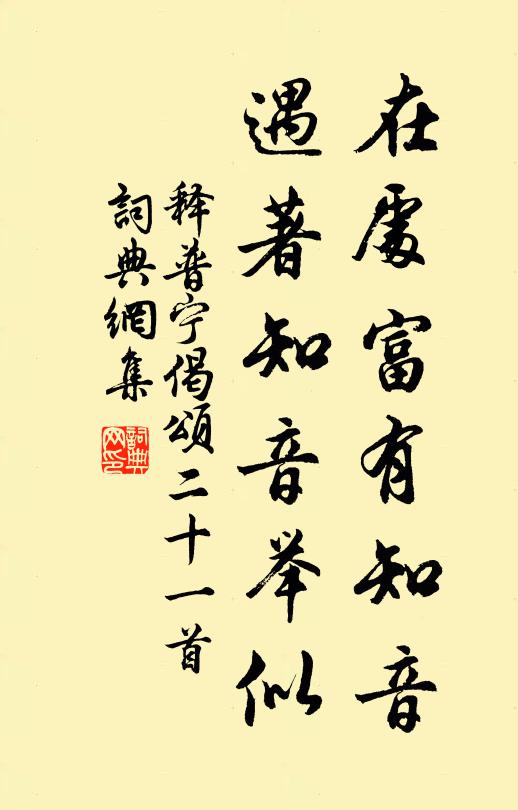 在處富有知音
遇著知音举似
释普宁偈頌二十一首
詞典網集
詞典
网印